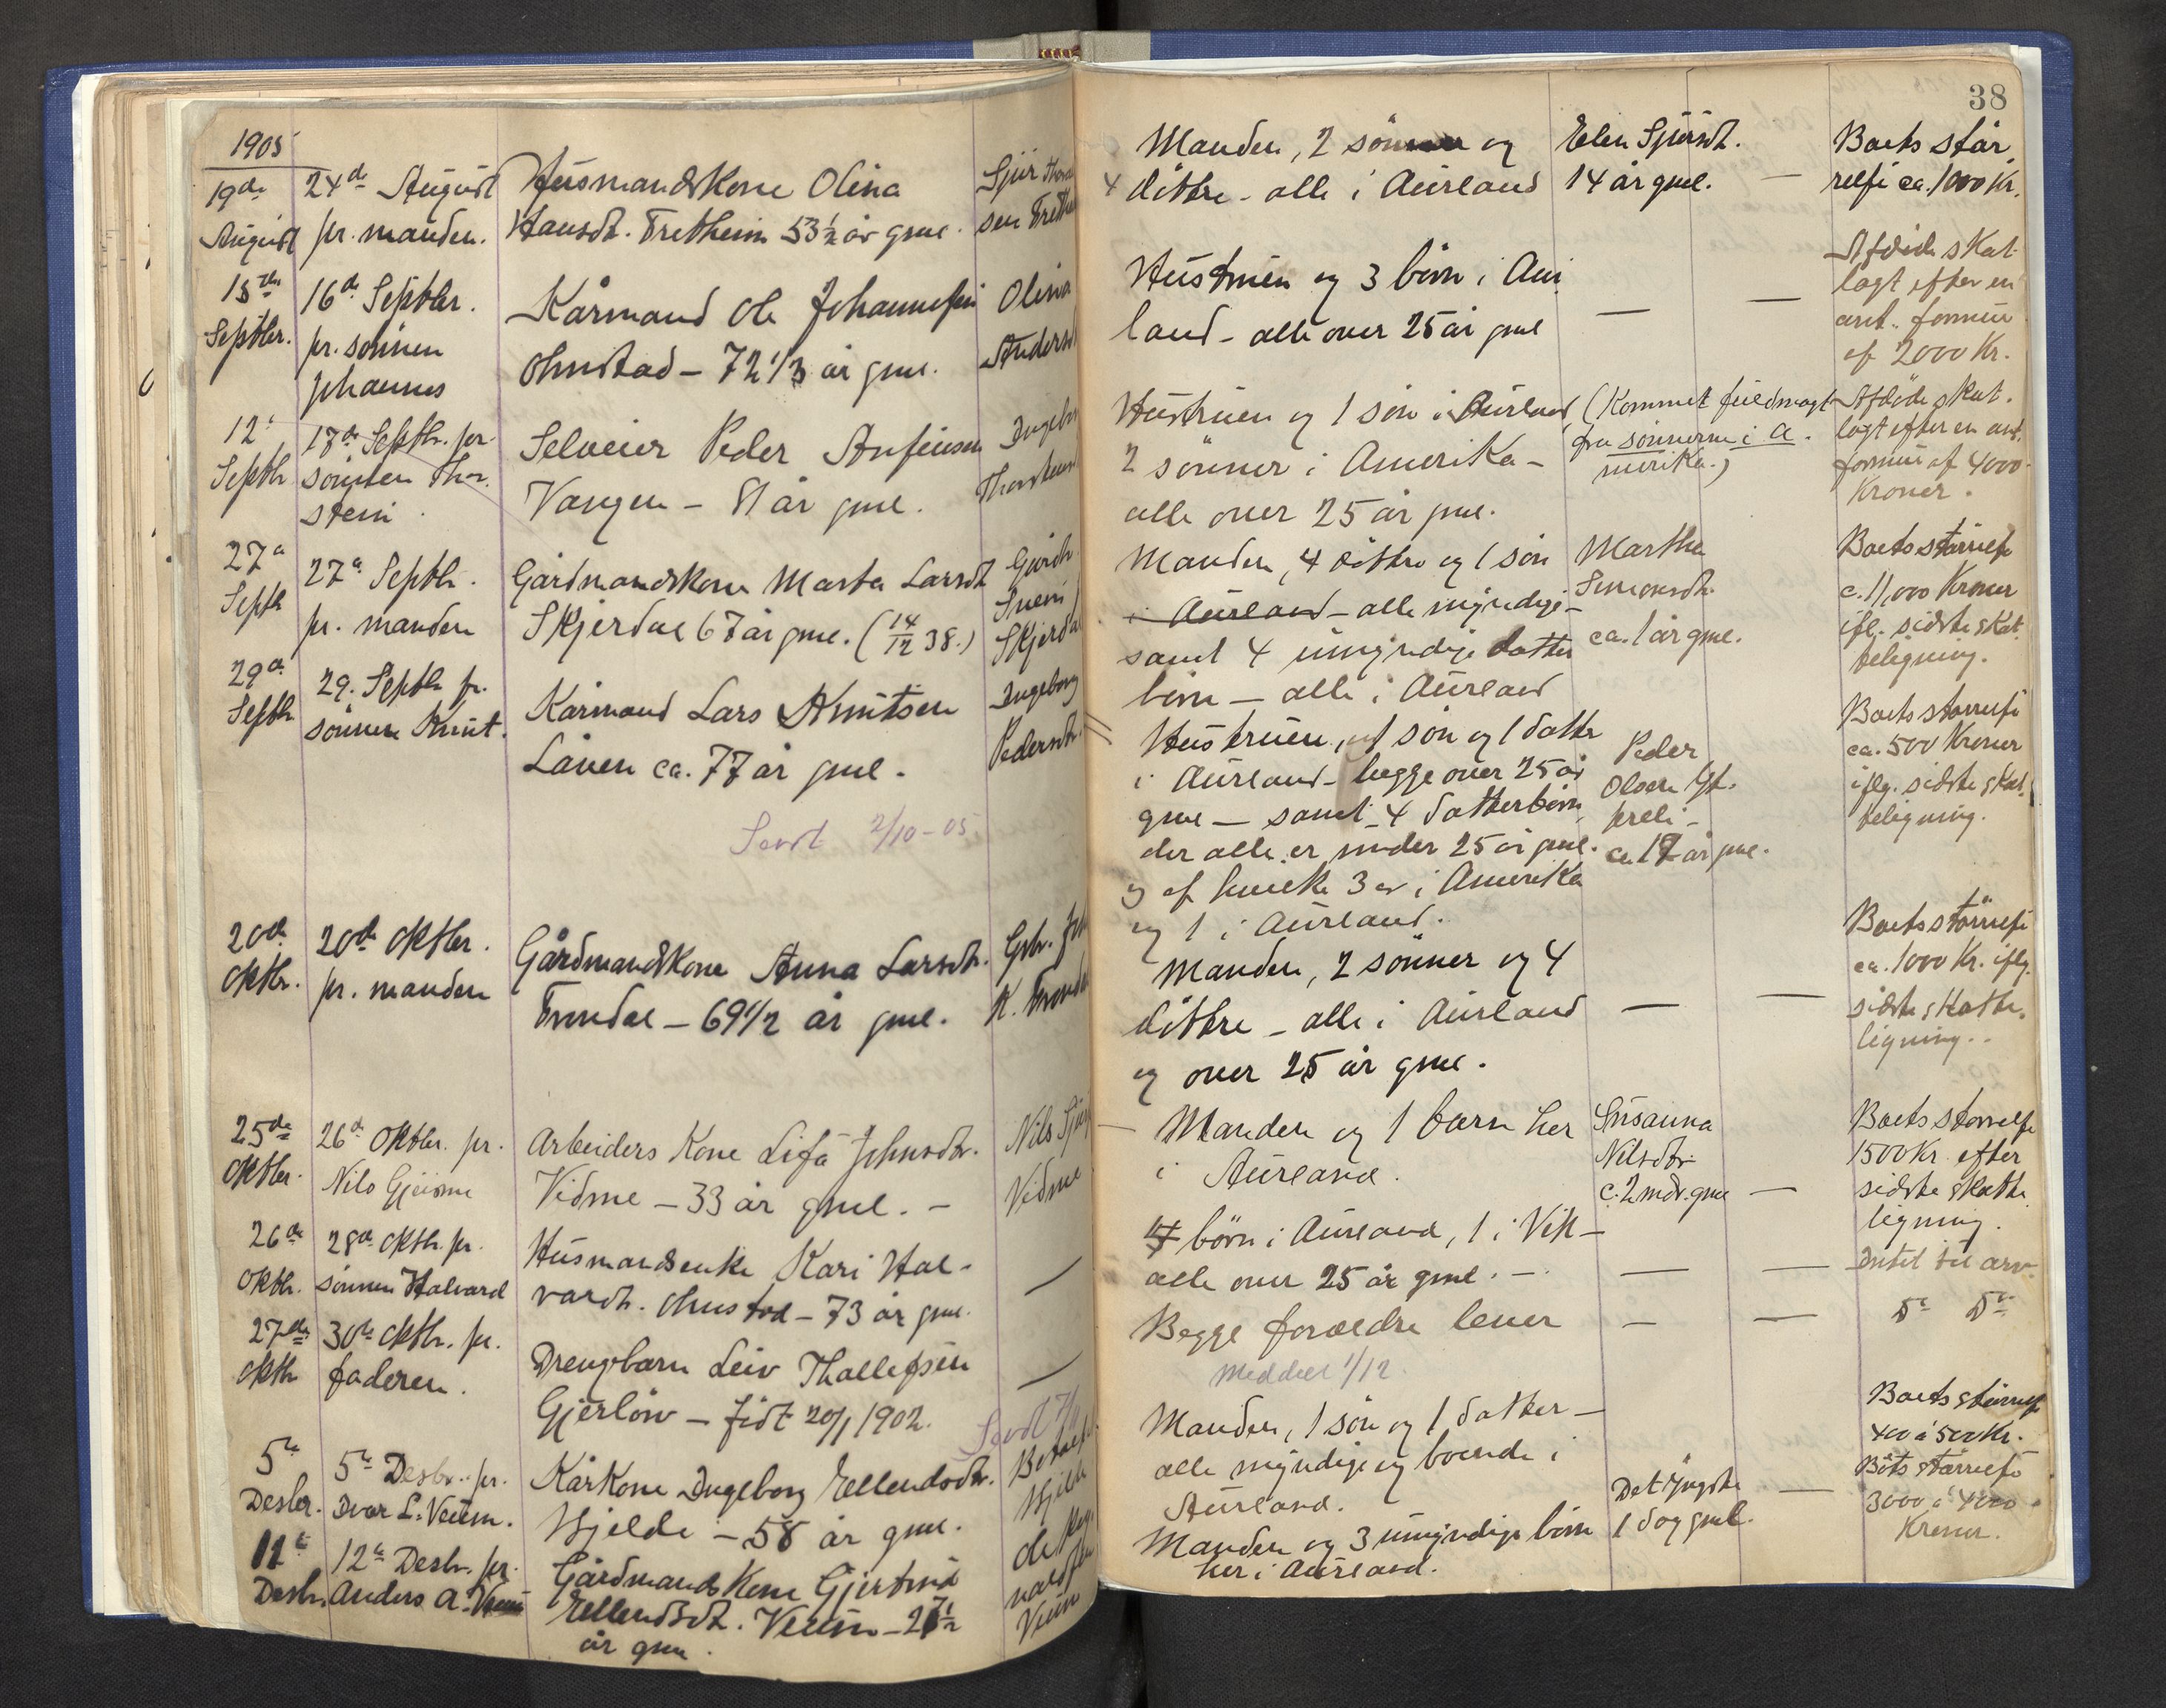 38
1905
19de August
24de August pr. manden.
Husmandskone Olina
Hansdt. Fretheim 53½ år gml.
Sjur
sen
Manden, 2 sönner og
4 döttre - alle i Aurland
Elen Sjursdt.
14 år gml.
—
Boets stør
relse ca. 1000 Kr.
15de Septbr.
16de Septbr.
pr. sönnen
Johannes
Kårmand Ole Johannesen
Ohnstad - 72 1/3 år gml.
Olina
Andersd
Hustruen og 3 börn i Aur
land - alle over 25 år gml
—
—
Afdöde skat
lagt efter en
ant. formue
af 2000 Kr.
12'
Septbr
18de Septbr. pr.
sönnen Thor
stein.
Selveier Peder Anfinsen
Vangen - 81 år gml.
Ingeb
Thorstens
Hustruen og 1 sön i Aurland,
2 sönner i Amerika -
alle over 25 år gml.
(Kommet fuldmagt
fra sönnerne i A
merika.)
Afdöde skat.
lagt efter en ant.
formue af 4000
Kroner.
27a
Septb
27a Septbr.
pr. manden
Gårdmandskone Marta Larsdt
Skjerdal 67 år gml. (14/12 38.)
Gårdb.
Svein
Skjerdal
Manden, 4 döttre og 1 sön
i Aurland - alle myndige -
samt 4 umyndige datter
börn - alle i Aurland
Martha
Simonsdt.
ca. 1 år gml.
Boets störrelse
c. 11,000 Kroner
ifl. sidste skat
teligning.
29de
Septbr
29. Septbr pr.
sönnen Knut.
Kårmand Lars Knutsen
Låven ca. 77 år gml.
Ingeborg
Pedersdt.
Sendt 2/10-05
Hustruen, 1 sön og 1 datter
i Aurland - begge over 25 år
gml - samt 4 datterbörn,
der alle er under 25 år gml.
og af hvilke 3 er i Amerika
og 1 i Aurland.
Peder
Olsen
ca. 17 år gml.
Boets störrelse
ca. 500 Kroner
iflg. sidste skat.
teligning.
20de
Oktbr.
20de Oktbr.
pr. manden
Gårdmandskone Anna Larsdt.
Frondal - 69½ år gml.
Gbr.
K. Frondal
Manden, 2 sönner og 4
döttre - alle i Aurland
og over 25 år gml.
—
—
Boets störrelse
ca. 1000 Kr. iflg.
sidste skatte.
ligning..
25de
Oktbr.
26de Oktbr. pr.
Nils Gjeisme
Arbeiders Kone Lisa Johnsdtr.
Vidme - 33 år gml. -
Nils
Vidme
Manden og 1 barn her
i Aurland.
Susanna
Nilsdtr.
c. 2 mdr. gml
—
Boets størrelse
1500 Kr. efter
sidste skatte
ligning.
26de
Oktbr.
28de Oktbr. pr.
sönnen Halvard
Husmandsenke Kari Hal-
vardt. Ohnstad - 73 år gml.
—
börn i Aurland, 1 i Vik -
alle over 25 år gml. -
—
—
Intet til arv.
27de
Oktb
30te Oktbr. pr.
faderen.
Drengebarn Leiv Thollefsen
Gjerlöw - född 20/1 1902.
—
Begge forældre lever
Meddelt 1/12
—
—
Do Do
5te
Desbr.
5te Desbr. pr.
Ivar L. Veum.
Kårkone Ingeborg Ellendsdtr.
Hjelde - 58 år gml.
Sendt
Hjelde
Manden, 1 sön og 1 datter -
alle myndige og boende i
Aurland.
Boets störrelse
400 à 500 Kr.
11te
Desbr.
12te Desbr. pr.
Anders A. Veum
Gårdmands Kone Gjertrud
Ellendsdt. Veum - 27½
år gml.
Veum
Manden og 3 umyndige börn
her i Aurland.
Det yngste
1 dag gml.
—
Böts störrelse
3000 à 4000
Kroner.